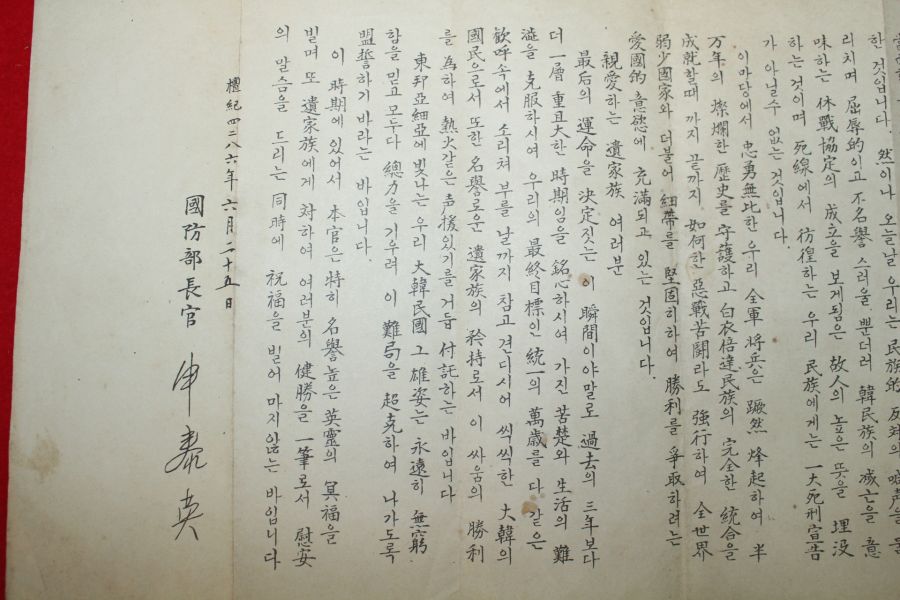 한 것입니다. 然이나 오늘날 우리는 民族的
리치며 屈辱的이고 不名譽스러울 뿐더러 韓民族의 滅亡을 意
味하는 休戰協定의 成立을 보게됨은 故人의 높은 뜻을 埋没
하는 것이며 死線에서 彷徨하는 우리 民族에게는 一大死刑宣告
가 아닐수 없는 것입니다.
이마당에서 忠勇無比한 우리 全軍將兵은 蹶然 烽起하여 半
万年의 燦爛한 歷史를 守護하고 白衣倍達民族의 完全한 統合을
成就할때 까지 끝까지 如何한 惡戰苦鬪라도 強行하여 全世界
弱少國家와 더불어 紐帶를 堅固히하여 勝利를 爭取하려는
愛國的 意慾에 充滿되고 있는 것입니다.
親愛하는 遺家族 여러분
最后의 運命을 決定짓는 이 瞬間이야말로 過去의 三年보다
더 一層 重且大한 時期임을 銘心하시여 가진 苦楚와 生活의 難
澁을 克服하시여 우리의 最終目標인 統一의 萬歲를 다 같은
歡呼속에서 소리쳐 부를 날까지 참고 견디시어 씩씩한 大韓의
國民으로서 또한 名譽로운 遺家族의 矜持로서 이 싸움의 勝利
를 為하여 熱火같은 声援있기를 거듭 付託하는 바입니다
東邦亞細亞에 빛나는 우리 大韓民國 그 雄姿는 永遠히 無窮
함을 믿고 모두다 總力을 기우려 이 難局을 超克하여 나가도록
盟誓하기 바라는 바입니다.
이 時期에 있어서 本官은 特히 名譽높은 英靈의 冥福을
빌며 또 遺家族에게 対하여 여러분의 健勝을 一筆로서 慰安
의 말슴을 드리는 同時에 祝福을 빌어 마지않는 바입니다
檀紀四二八六年 六月 二十五日
國防部長官 申泰英